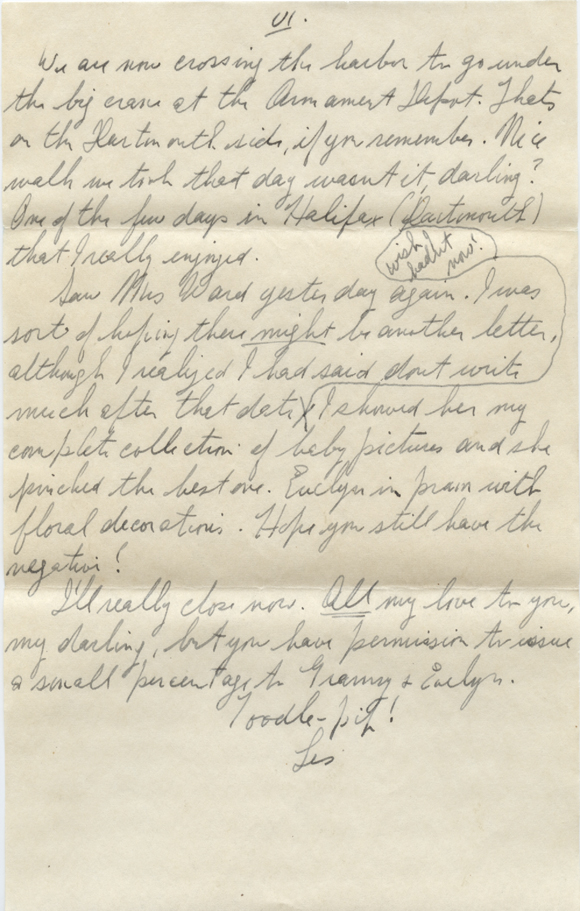 VI.
We are now crossing the harbor to go under
the big crane at the Armament Depot. Thats
on the Dartmouth side, if you remember. Nice
walk we took that day wasnt it, darling?
One of the few days in Halifax (Dartmouth)
that I really enjoyed.
wish I
hadnt
now!
Saw Mrs Ward yesterday again. I was
sort of hoping there might be another letter,
although I realized I had said dont write
much after that date. I showed her my
complete collection of baby pictures and she
pinched the best one. Evelyn in pram with
floral decorations. Hope you still have the
negative!
I'll really close now. All my love to you,
my darling, but you have permission to issue
a small percentage to Granny & Evelyn.
Toodle-pip!
Les